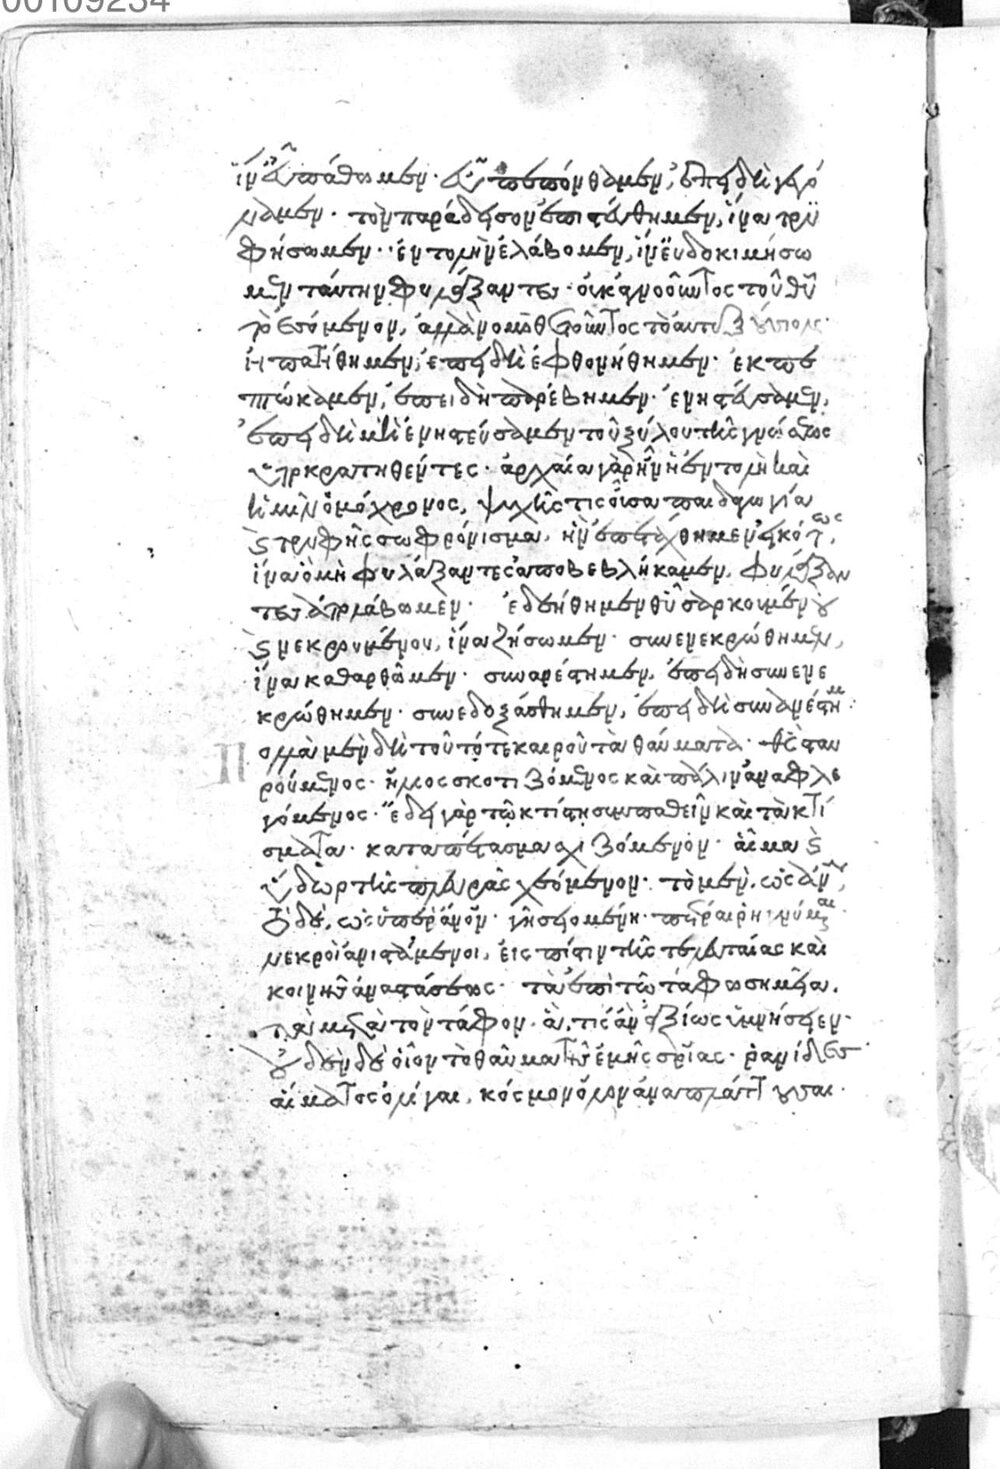 ἵν' εὖ πάθωμεν· εὖ πεπόνθαμεν, ἐπειδὴ γεγό
ναμεν· τὸν παράδεισον ἐπιστεύθημεν, ἵνα τρυ
φήσωμεν· ἐντολὴν ἐλάβομεν, ἵν' εὐδοκιμήσω
μεν ταύτην φυλάξαντες· οὐκ ἀγνοοῦντος τοῦ θυ
τὸ ἐσόμενον, ἀλλὰ νομοθετοῦντος τὸ αὐτεξούσιον·
ἠπατήθημεν, ἐπειδὴ ἐφθονήθημεν· ἐκπε
πτώκαμεν, ἐπειδὴ παρέβημεν· ἐνηστεύσαμεν,
ἐπειδὴ μὴ ἐνηστεύσαμεν τοῦ ξύλου τῆς γνώσεως
ὑπερκρατηθέντες· ἀρχαία γὰρ ἦν ἡ ἐντολὴ καὶ
ἡμῖν ὁμόχρονος, ψυχῆς τις οὖσα παιδαγωγία
καὶ τρυφῆς σωφρόνισμα, ἣν ἐπετάχθημεν εἰκότως,
ἵνα ὃ μὴ φυλάξαντες ἀποβεβλήκαμεν, φυλάξαν
τες ἀπολάβωμεν· ἐδεήθημεν θυ σαρκουμένου
καὶ νεκρουμένου, ἵνα ζήσωμεν· συνενεκρώθημεν,
ἵνα καθαρθῶμεν· συνανέστημεν, ἐπειδὴ συνενε
κρώθημεν· συνεδοξάσθημεν, ἐπειδὴ συνανέστημεν·
Πολλὰ μὲν δὴ τοῦ τότε καιροῦ τὰ θαύματα· θς σταυ
ρούμενος· ἥλιος σκοτιζόμενος καὶ πάλιν ἀναφλε
γόμενος· ἔδει γὰρ τῷ κτίστῃ συμπαθεῖν καὶ τὰ κτί
σματα· καταπέτασμα σχιζόμενον· αἷμα καὶ
ὕδωρ τῆς πλευρᾶς χεόμενον· τὸ μὲν, ὡς ἀνου,
τὸ δὲ, ὡς ὑπὲρ ἄνον· γῆ σειομένη· πέτραι ῥηγνύμεναι·
νεκροὶ ἀνιστάμενοι, εἰς πίστιν τῆς τελευταίας καὶ
κοινῆς ἀναστάσεως· τὰ ἐπὶ τῷ τάφῳ σημεῖα,
τὰ μετὰ τὸν τάφον· ἃ, τίς ἂν ἀξίως ὑμνήσειεν·
οὐδὲν δὲ οἷον τὸ θαῦμα τῆς ἐμῆς σρίας· ῥανίδες
αἵματος ὀλίγαι, κόσμον ὅλον ἀναπλάττουσαι·